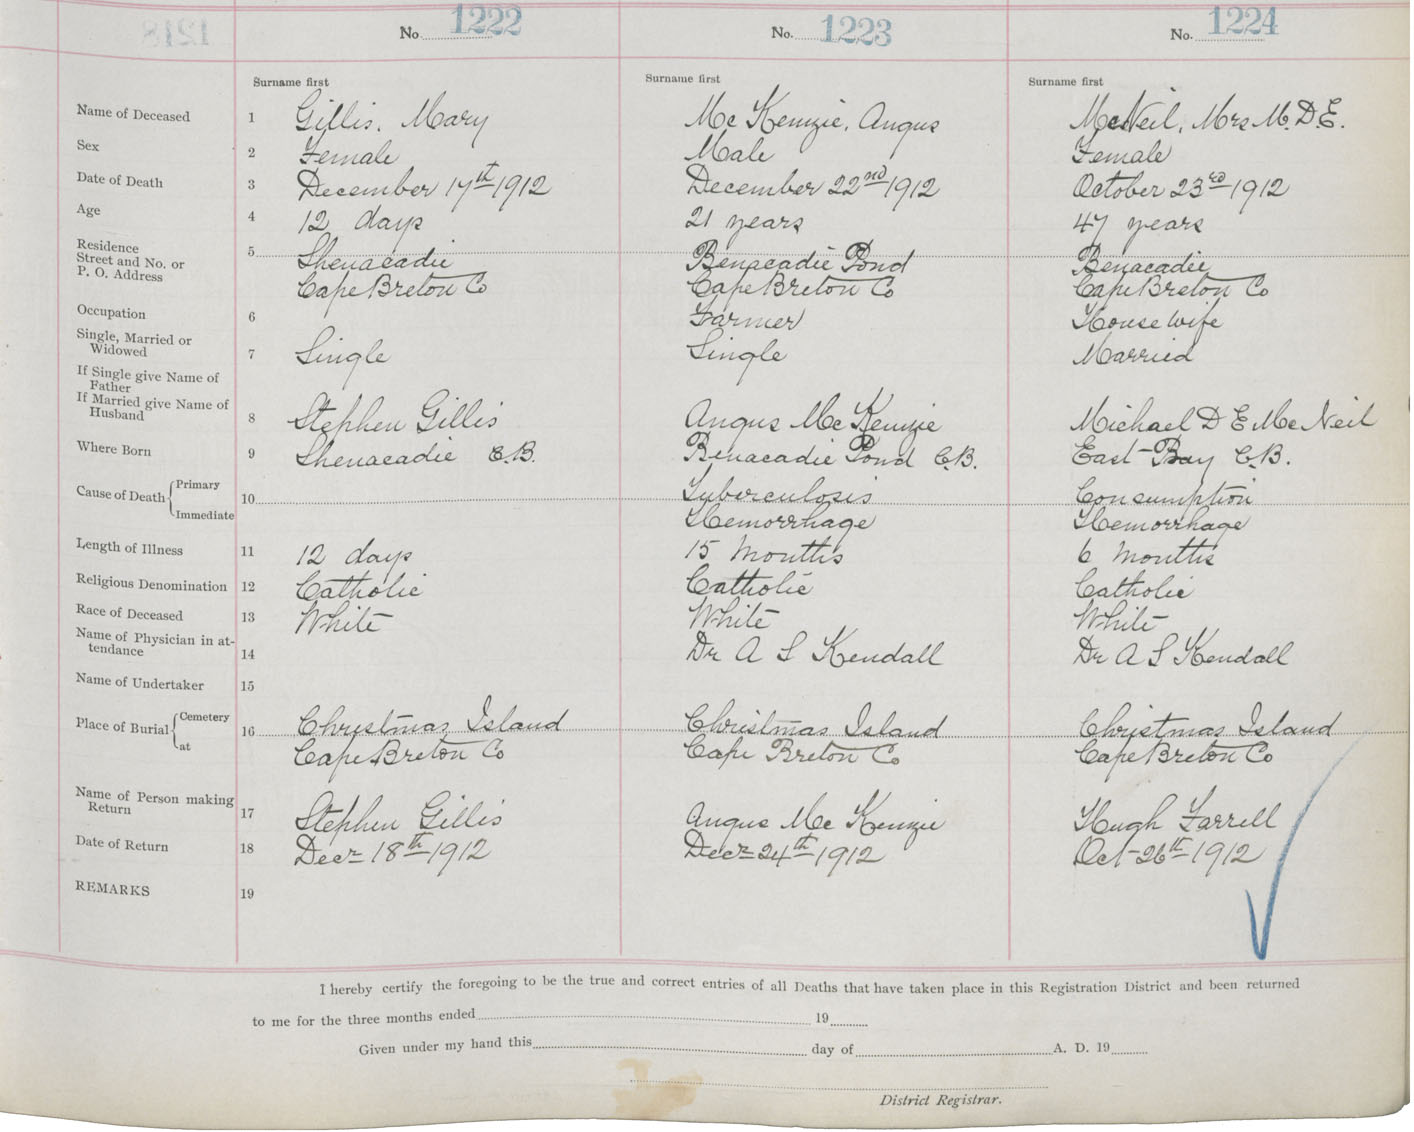 1218
No. 1222
No. 1223
No. 1224
Surname first
Surname first
Surname first
Name of Deceased 1 Gillis, Mary Mc Kenzie, Angus McNeil, Mrs M. D. E.
Sex 2 Female Male Female
Date of Death 3 December 17th 1912 December 22nd 1912 October 23rd 1912
Age 4 12 days 21 years 47 years
Residence
Street and No. or 5 Shenacadie Benacadie Pond Benacadie
P. O. Address Cape Breton Co Cape Breton Co Cape Breton Co
Occupation 6 Farmer House wife
Single, Married or
Widowed 7 Single Single Married
If Single give Name of
Father
If Married give Name of
Husband 8 Stephen Gillis Angus Mc Kenzie Michael D E Mc Neil
Where Born 9 Shenacadie C.B. Benacadie Pond C.B. East Bay C.B.
Cause of Death { Primary 10 Tuberculosis Consumption
Immediate Hemorrhage Hemorrhage
Length of Illness 11 12 days 15 Months 6 Months
Religious Denomination 12 Catholic Catholic Catholic
Race of Deceased 13 White White White
Name of Physician in at-
tendance 14 Dr A S Kendall Dr A S Kendall
Name of Undertaker 15
Place of Burial { Cemetery 16 Christmas Island Christmas Island Christmas Island
at Cape Breton Co Cape Breton Co Cape Breton Co
Name of Person making
Return 17 Stephen Gillis Angus Mc Kenzie Hugh Farrell
Date of Return 18 Decr 18th 1912 Decr 24th 1912 Oct 26th 1912
REMARKS 19
I hereby certify the foregoing to be the true and correct entries of all Deaths that have taken place in this Registration District and been returned
to me for the three months ended 19
Given under my hand this day of A. D. 19
District Registrar.